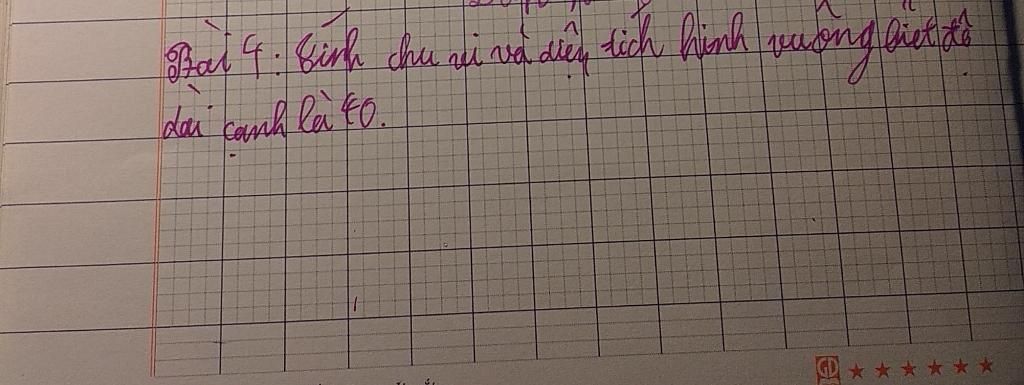 Bài 4: Tính chu vi và diện tích hình vuông biết độ
dài cạnh là 40.